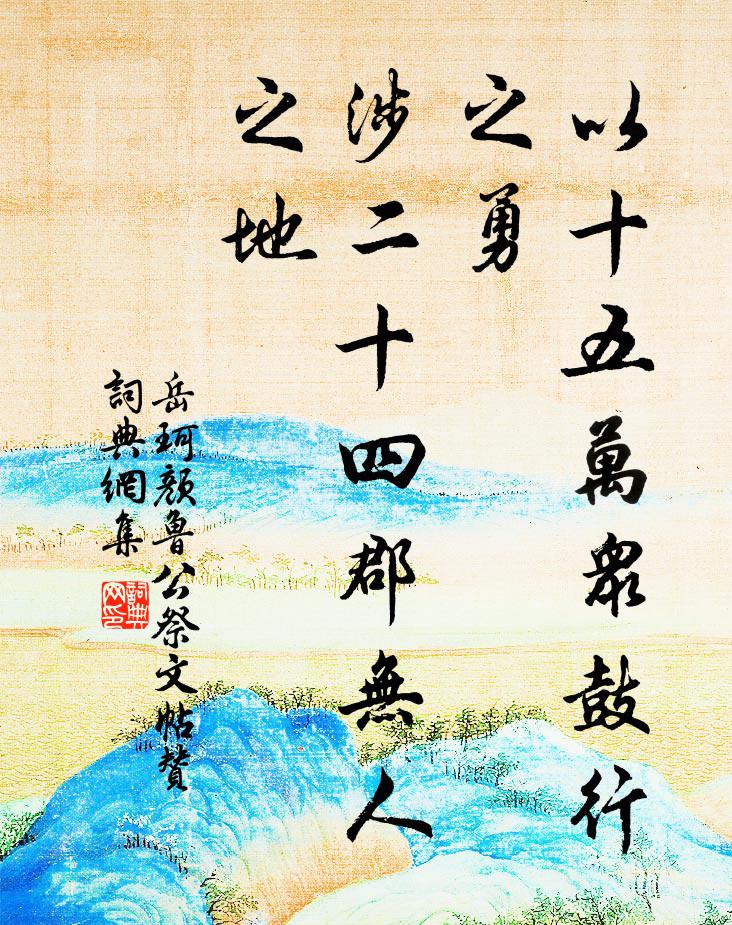 以十五萬衆鼓行
之勇
涉二十四郡無人
之地
岳珂顏魯公祭文帖贊
詞典網集
詞典
网印